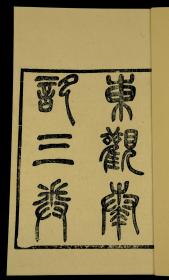 東觀奏
記三卷